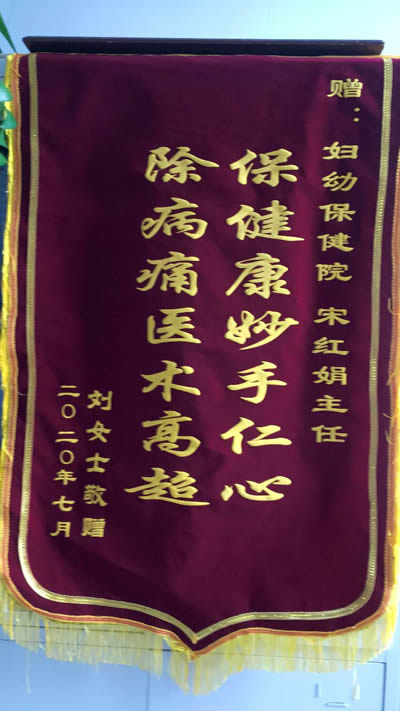 赠：妇幼保健院 宋红娟主任
保健康妙手仁心
除病痛医术高超
刘女士敬赠
二〇二〇年七月